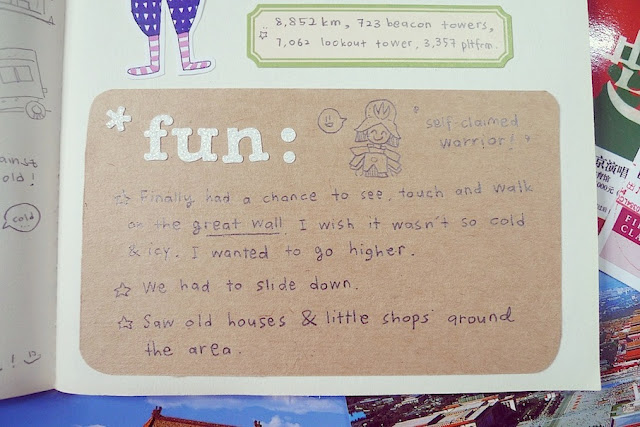 8,852 km, 723 beacon towers,
☆ 7,062 lookout tower, 3,357 pltfrm.
ainst
old!
cold
*fun:
"self-claimed
warrior!"
☆ Finally had a chance to see, touch and walk
on the great wall. I wish it wasn't so cold
& icy. I wanted to go higher.
☆ We had to slide down.
☆ Saw old houses & little shops around
the area.
京演唱
FI
CLA